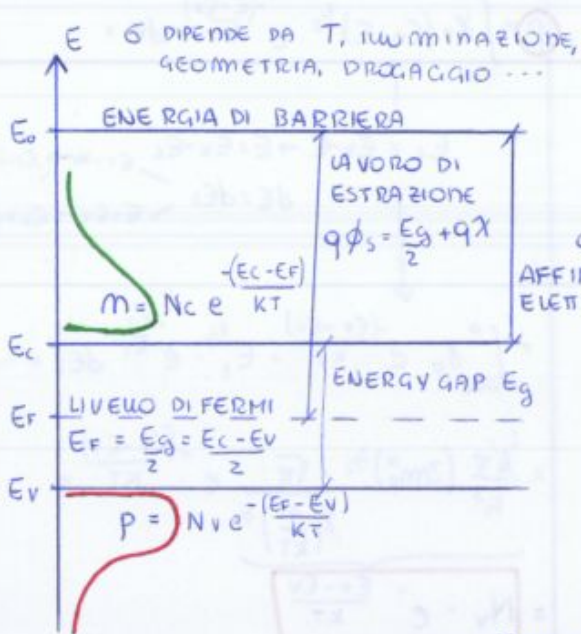 E   σ DIPENDE DA T, ILLUMINAZIONE,
GEOMETRIA, DROGAGGIO ...
E₀   ENERGIA DI BARRIERA
LAVORO DI
ESTRAZIONE
qϕₛ = Eg/2 + qχ
AFFI
ELETT
n = Nc e^(-(Ec-EF)/KT)
Ec
ENERGY GAP Eg
EF   LIVELLO DI FERMI
EF = Eg/2 = (Ec-Ev)/2
Ev
p = Nv e^(-(EF-Ev)/KT)